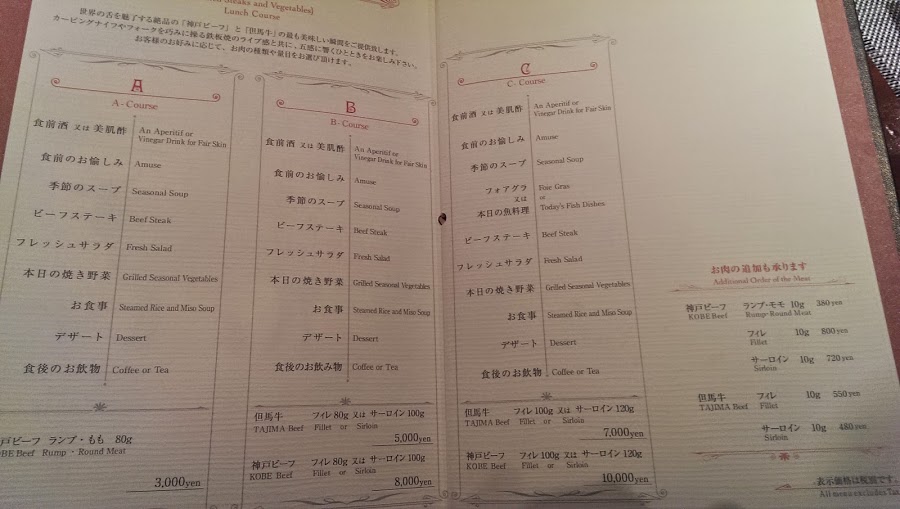 Steaks and Vegetables]
Lunch Course
世界の舌を魅了する絶品の「神戸ビーフ」と「但馬牛」の最も美味しい瞬間をご提供致します。
カービングナイフやフォークを巧みに操る鉄板焼のライブ感と共に、五感に響くひとときをお楽しみ下さい。
お客様のお好みに応じて、お肉の種類や量目をお選び頂けます。
A
A - Course
食前酒 又は 美肌酢 An Aperitif or
Vinegar Drink for Fair Skin
食前のお愉しみ Amuse
季節のスープ Seasonal Soup
ビーフステーキ Beef Steak
フレッシュサラダ Fresh Salad
本日の焼き野菜 Grilled Seasonal Vegetables
お食事 Steamed Rice and Miso Soup
デザート Dessert
食後のお飲物 Coffee or Tea
戸ビーフ ランプ・もも 80g
BE Beef Rump・Round Meat
3,000yen
B
B - Course
食前酒 又は 美肌酢 An Aperitif or
Vinegar Drink for Fair Skin
食前のお愉しみ Amuse
季節のスープ Seasonal Soup
ビーフステーキ Beef Steak
フレッシュサラダ Fresh Salad
本日の焼き野菜 Grilled Seasonal Vegetables
お食事 Steamed Rice and Miso Soup
デザート Dessert
食後のお飲み物 Coffee or Tea
但馬牛 フィレ 80g 又は サーロイン 100g
TAJIMA Beef Fillet or Sirloin
5,000yen
神戸ビーフ フィレ 80g 又は サーロイン 100g
KOBE Beef Fillet or Sirloin
8,000yen
C
C - Course
食前酒 又は 美肌酢 An Aperitif or
Vinegar Drink for Fair Skin
食前のお愉しみ Amuse
季節のスープ Seasonal Soup
フォアグラ Foie Gras
又は or
本日の魚料理 Today's Fish Dishes
ビーフステーキ Beef Steak
フレッシュサラダ Fresh Salad
本日の焼き野菜 Grilled Seasonal Vegetables
お食事 Steamed Rice and Miso Soup
デザート Dessert
食後のお飲物 Coffee or Tea
但馬牛 フィレ 100g 又は サーロイン 120g
TAJIMA Beef Fillet or Sirloin
7,000yen
神戸ビーフ フィレ 100g 又は サーロイン 120g
KOBE Beef Fillet or Sirloin
10,000yen
お肉の追加も承ります
Additional Order of the Meat
神戸ビーフ ランプ・モモ 10g 380yen
KOBE Beef Rump・Round Meat
フィレ 10g 800yen
Fillet
サーロイン 10g 720yen
Sirloin
但馬牛 フィレ 10g 550yen
TAJIMA Beef Fillet
サーロイン 10g 480yen
Sirloin
表示価格は税別です。
All menu excludes Tax